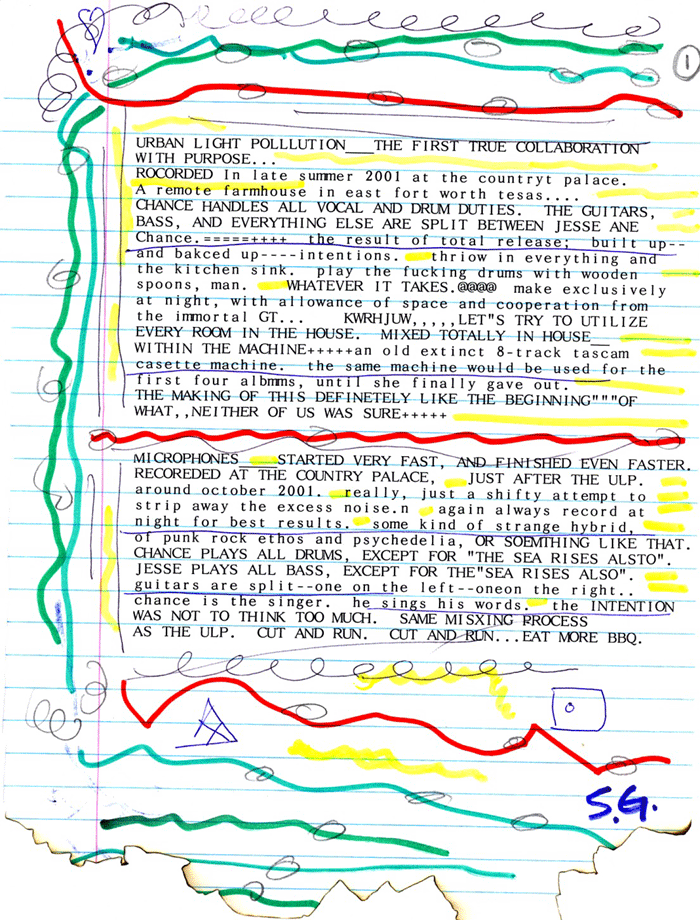 1
URBAN LIGHT POLLLUTION___THE FIRST TRUE COLLABORATION
WITH PURPOSE...
ROCORDED In late summer 2001 at the countryt palace.
A remote farmhouse in east fort worth tesas....
CHANCE HANDLES ALL VOCAL AND DRUM DUTIES.  THE GUITARS,
BASS, AND EVERYTHING ELSE ARE SPLIT BETWEEN JESSE ANE
Chance.=====++++  the result of total release;  built up--
and bakced up----intentions.  thriow in everything and
the kitchen sink.  play the fucking drums with wooden
spoons, man.  WHATEVER IT TAKES.@@@@  make exclusively
at night, with allowance of space and cooperation from
the immortal GT...  KWRHJUW,,,,,LET"S TRY TO UTILIZE
EVERY ROOM IN THE HOUSE.  MIXED TOTALLY IN HOUSE__
WITHIN THE MACHINE+++++an old extinct 8-track tascam
casette machine.  the same machine would be used for the
first four albmms, until she finally gave out.
THE MAKING OF THIS DEFINETELY LIKE THE BEGINNING"""OF
WHAT,,NEITHER OF US WAS SURE+++++
MICROPHONES____STARTED VERY FAST, AND FINISHED EVEN FASTER.
RECOREDED AT THE COUNTRY PALACE,  JUST AFTER THE ULP.
around october 2001.  really, just a shifty attempt to
strip away the excess noise.n  again always record at
night for best results.  some kind of strange hybrid,
of punk rock ethos and psychedelia, OR SOEMTHING LIKE THAT.
CHANCE PLAYS ALL DRUMS, EXCEPT FOR "THE SEA RISES ALSTO".
JESSE PLAYS ALL BASS, EXCEPT FOR THE"SEA RISES ALSO".
guitars are split--one on the left--oneon the right..
chance is the singer.  he sings his words.  the INTENTION
WAS NOT TO THINK TOO MUCH.  SAME MISXING PROCESS
AS THE ULP.  CUT AND RUN.  CUT AND RUN...EAT MORE BBQ.
S.G.